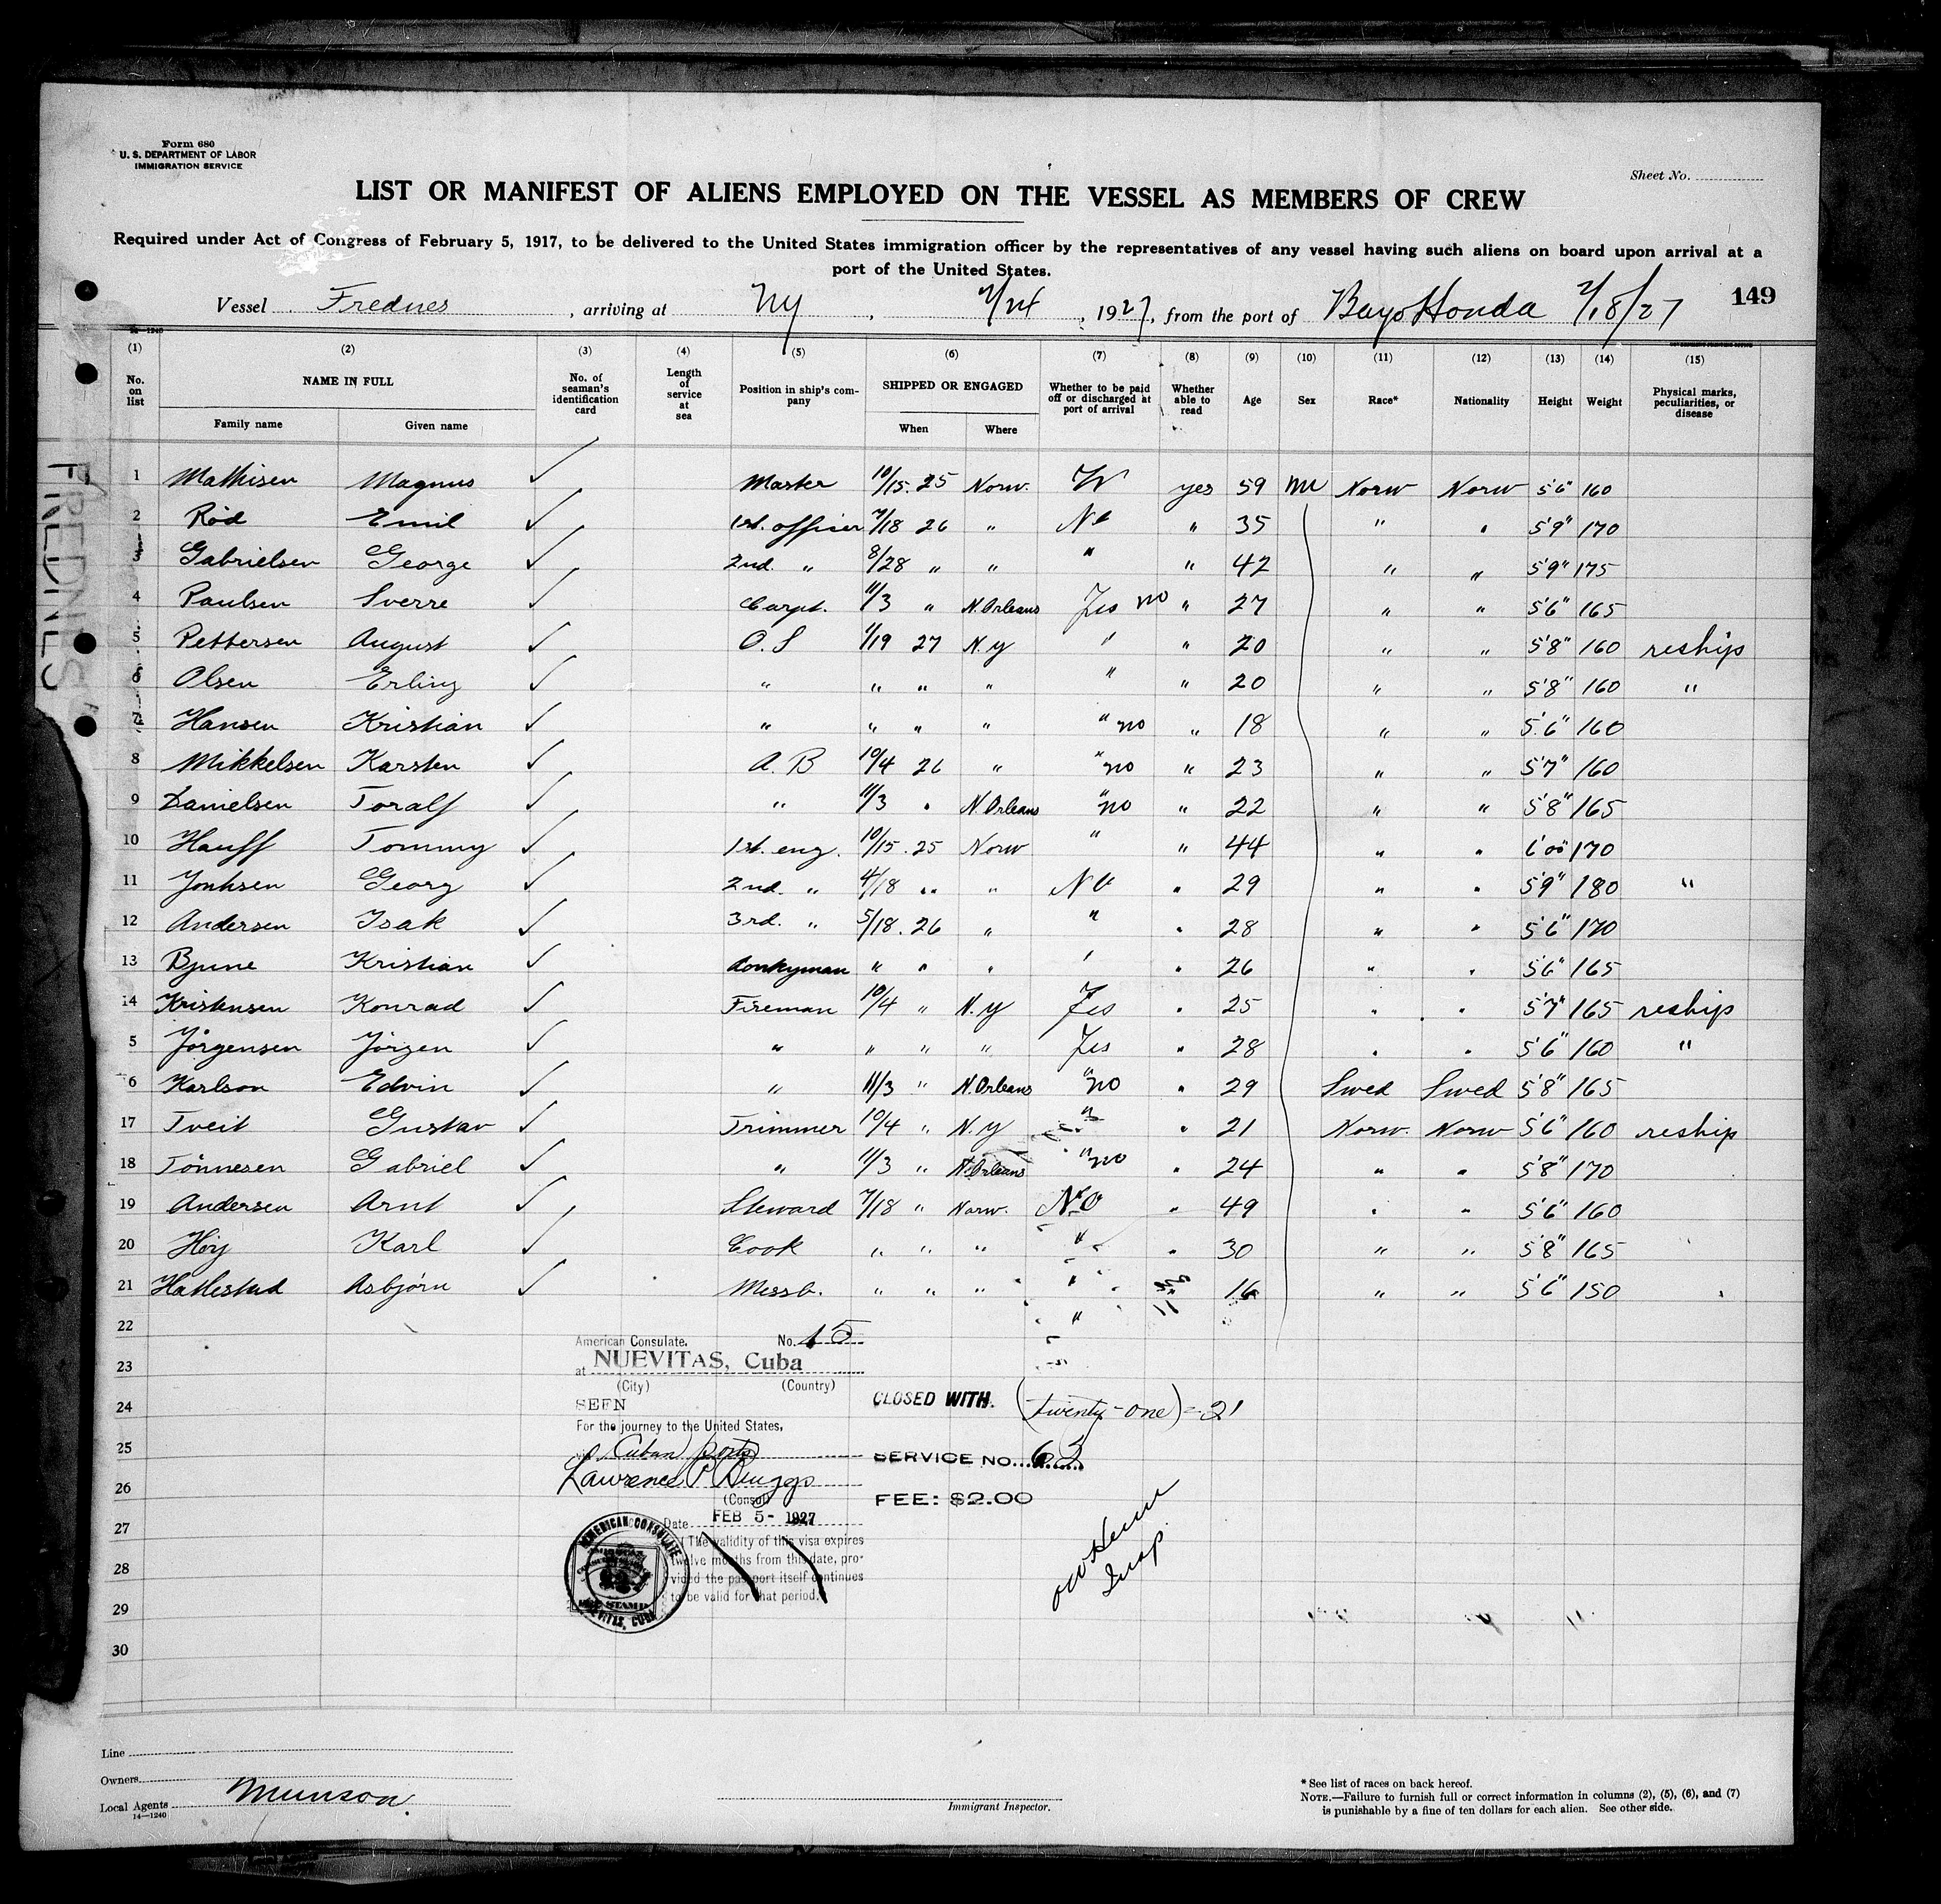 Form 680
U. S. DEPARTMENT OF LABOR
IMMIGRATION SERVICE
Sheet No.
LIST OR MANIFEST OF ALIENS EMPLOYED ON THE VESSEL AS MEMBERS OF CREW
Required under Act of Congress of February 5, 1917, to be delivered to the United States immigration officer by the representatives of any vessel having such aliens on board upon arrival at a
port of the United States.
Vessel Frednes, arriving at Ny, 2/24, 1927, from the port of Bayo Honda 2/18/27 149
(1) (2) (3) (4) (5) (6) (7) (8) (9) (10) (11) (12) (13) (14) (15)
No. on list NAME IN FULL No. of seaman's identification card Length of service at sea Position in ship's company SHIPPED OR ENGAGED Whether to be paid off or discharged at port of arrival Whether able to read Age Sex Race* Nationality Height Weight Physical marks, peculiarities, or disease
Family name Given name When Where
1 Mathisen Magnus ✓ Master 10/15. 25 Norw. yes 59 M Norw Norw 5'6" 160
2 Rød Emil ✓ 1st. officer 7/18 26 " No " 35 " " 5'9" 170
3 Gabrielsen George ✓ 2nd. " 8/28 " " " " 42 " " 5'9" 175
4 Paulsen Sverre ✓ Carpt. 11/3 " N. Orleans Yes no " 27 " " 5'6" 165
5 Pettersen August ✓ O. S 1/19 27 N. y " " 20 " " 5'8" 160 reship
6 Olsen Erling ✓ " " " " " " 20 " " 5'8" 160 "
7 Hansen Kristian ✓ " " " " " no " 18 " " 5'6" 160
8 Mikkelsen Karsten ✓ A. B 10/4 26 " " no " 23 " " 5'7" 160
9 Danielsen Toralf ✓ " 11/3 " N Orleans " no " 22 " " 5'8" 165
10 Hauff Tommy ✓ 1st. eng. 10/15. 25 Norw " " 44 " " 6'00" 170
11 Jonhsen Georg ✓ 2nd. " 4/18 " " No " 29 " " 5'9" 180 "
12 Andersen Isak ✓ 3rd. " 5/18. 26 " " " 28 " " 5'6" 170
13 Bjune Kristian ✓ donkyman " " " " " 26 " " 5'6" 165
14 Kristensen Konrad ✓ Fireman 10/4 " N. y Yes " 25 " " 5'7" 165 reship
5 Jørgensen Jörgen ✓ " " " " Yes " 28 " " 5'6" 160 "
6 Karlson Edvin ✓ " 11/3 " N. Orleans " no " 29 Swed Swed 5'8" 165
17 Tveit Gustav ✓ Trimmer 10/4 " N. y " " 21 Norw. Norw 5'6" 160 reship
18 Tönnesen Gabriel ✓ " 11/3 " N. Orleans " no " 24 " " 5'8" 170
19 Andersen Arnt ✓ Steward 7/18 " Norw. No " 49 " " 5'6" 160
20 Høy Karl ✓ Cook " " " " " 30 " " 5'8" 165
21 Hattestad Asbjørn ✓ Messb. " " " " 16 " " 5'6" 150
22
23
24
25
26
27
28
29
30
American Consulate. No. 15
at NUEVITAS, Cuba
(City) (Country)
SEEN
For the journey to the United States,
Cuban ports
Lawrence P Briggs
(Consul)
Date FEB 5- 1927
The validity of this visa expires
twelve months from this date, pro-
vided the passport itself continues
to be valid for that period.
AMERICAN CONSULATE
NUEVITAS, CUBA
CLOSED WITH. (twenty-one) = 21
SERVICE NO. 63
FEE: $2.00
Insp.
FREDNES
FREDNES
Line
Owners
Local Agents Munson.
14—1240
Immigrant Inspector.
* See list of races on back hereof.
NOTE.—Failure to furnish full or correct information in columns (2), (5), (6), and (7)
is punishable by a fine of ten dollars for each alien. See other side.